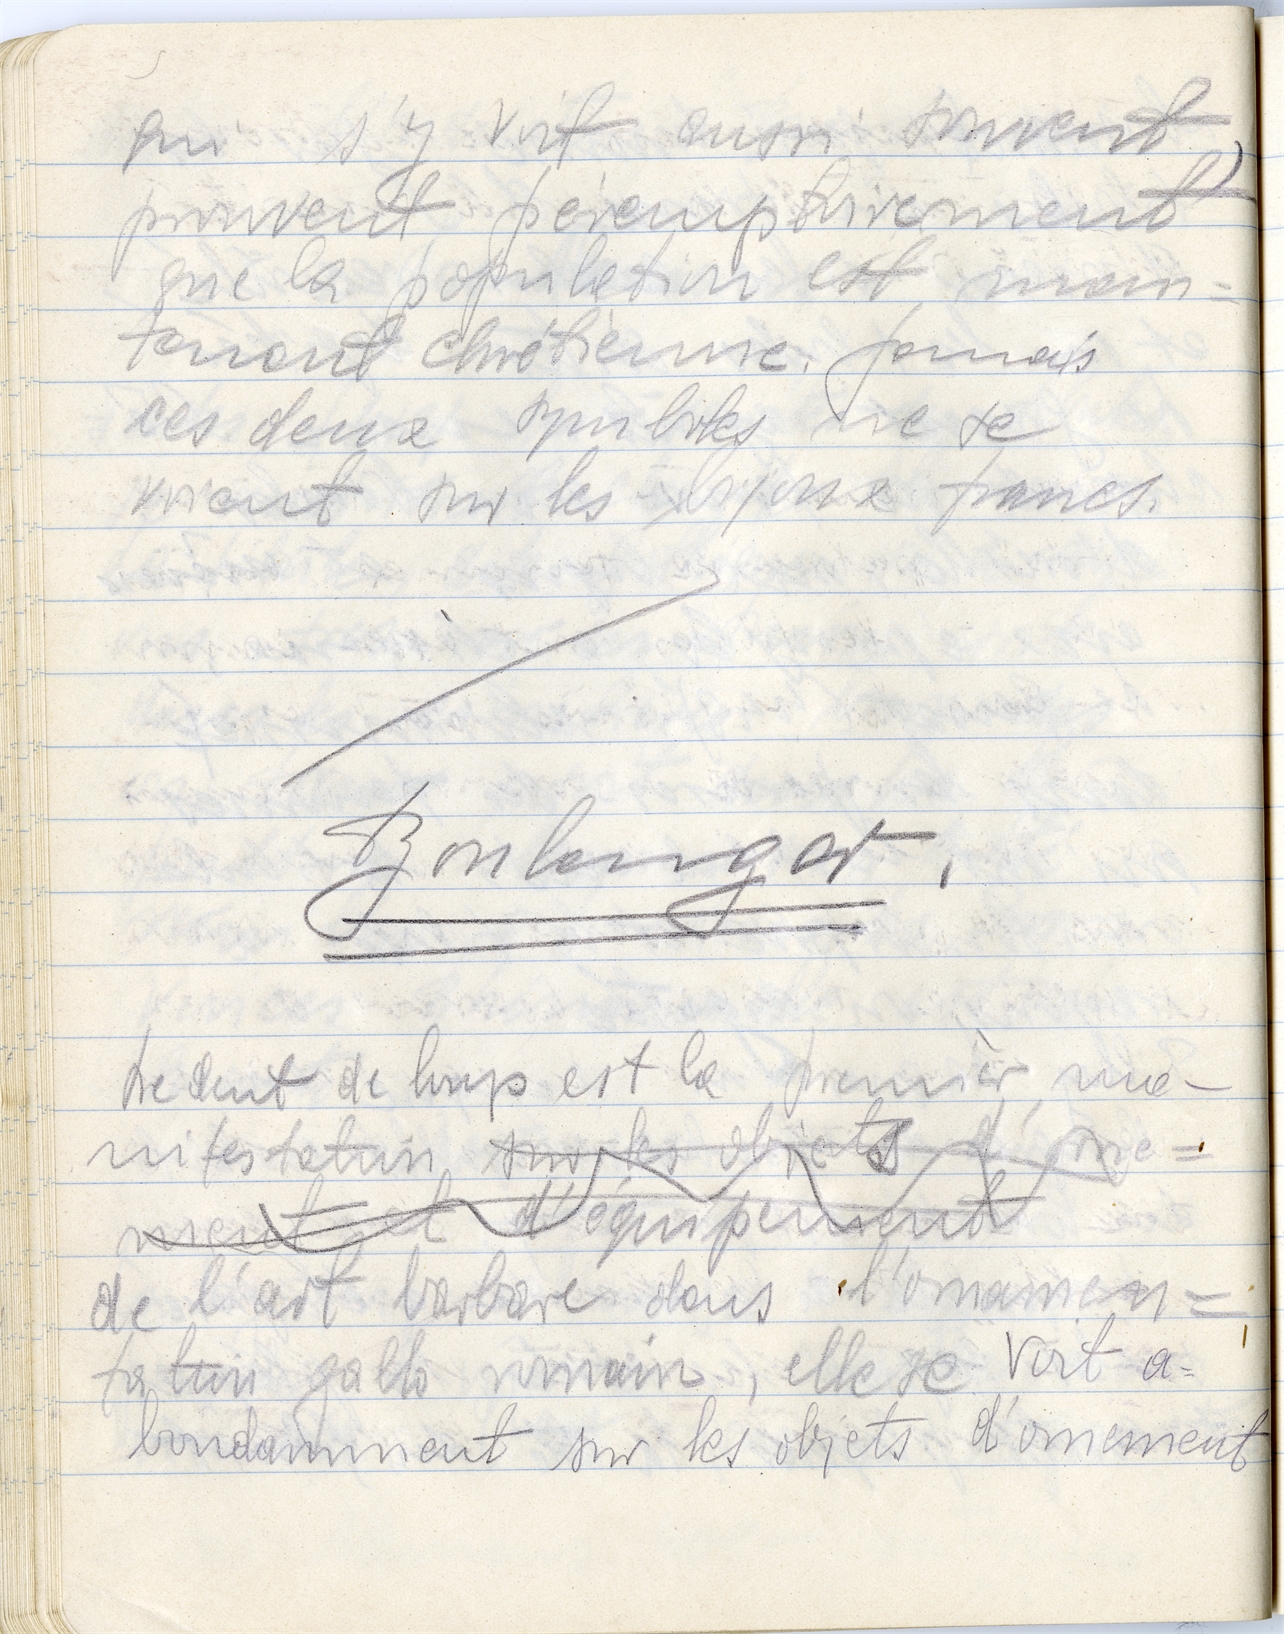 qui s'y voit aussi souvent)
prouvent péremptoirement
que la population est main=
tenant chrétienne. Jamais
ces deux symboles ne se
voient sur les bijoux francs.
Boulanger.
de dent de loup est la premièr ma-
nifestation sur les objets d'orne=
ment et d'équipement
de l'art barbare dans l'ornamen=
tation gallo romain, elle se voit a=
bondamment sur les objets d'ornement